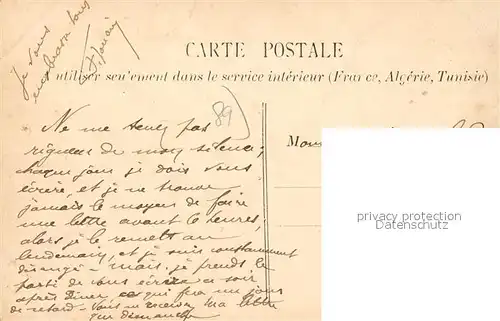 Je vous
embrasse tous
CARTE POSTALE
utiliser seu'ement dans le service intérieur (France, Algérie, Tunisie)
89
Ne me tenez pas
rigueur de mon silence,
chaque jour je dois vous
écrire, et je ne trouve
jamais le moyen de faire
une lettre avant 6 heures,
alors je le remets au
lendemain, et je suis constamment
dérangé - Mais je prends le
parti de vous écrire ce soir
après diner, ce qui fera un jour
de retard - Vous ne recevrez ma lettre
que dimanche
Mons
privacy protection
Datenschutz